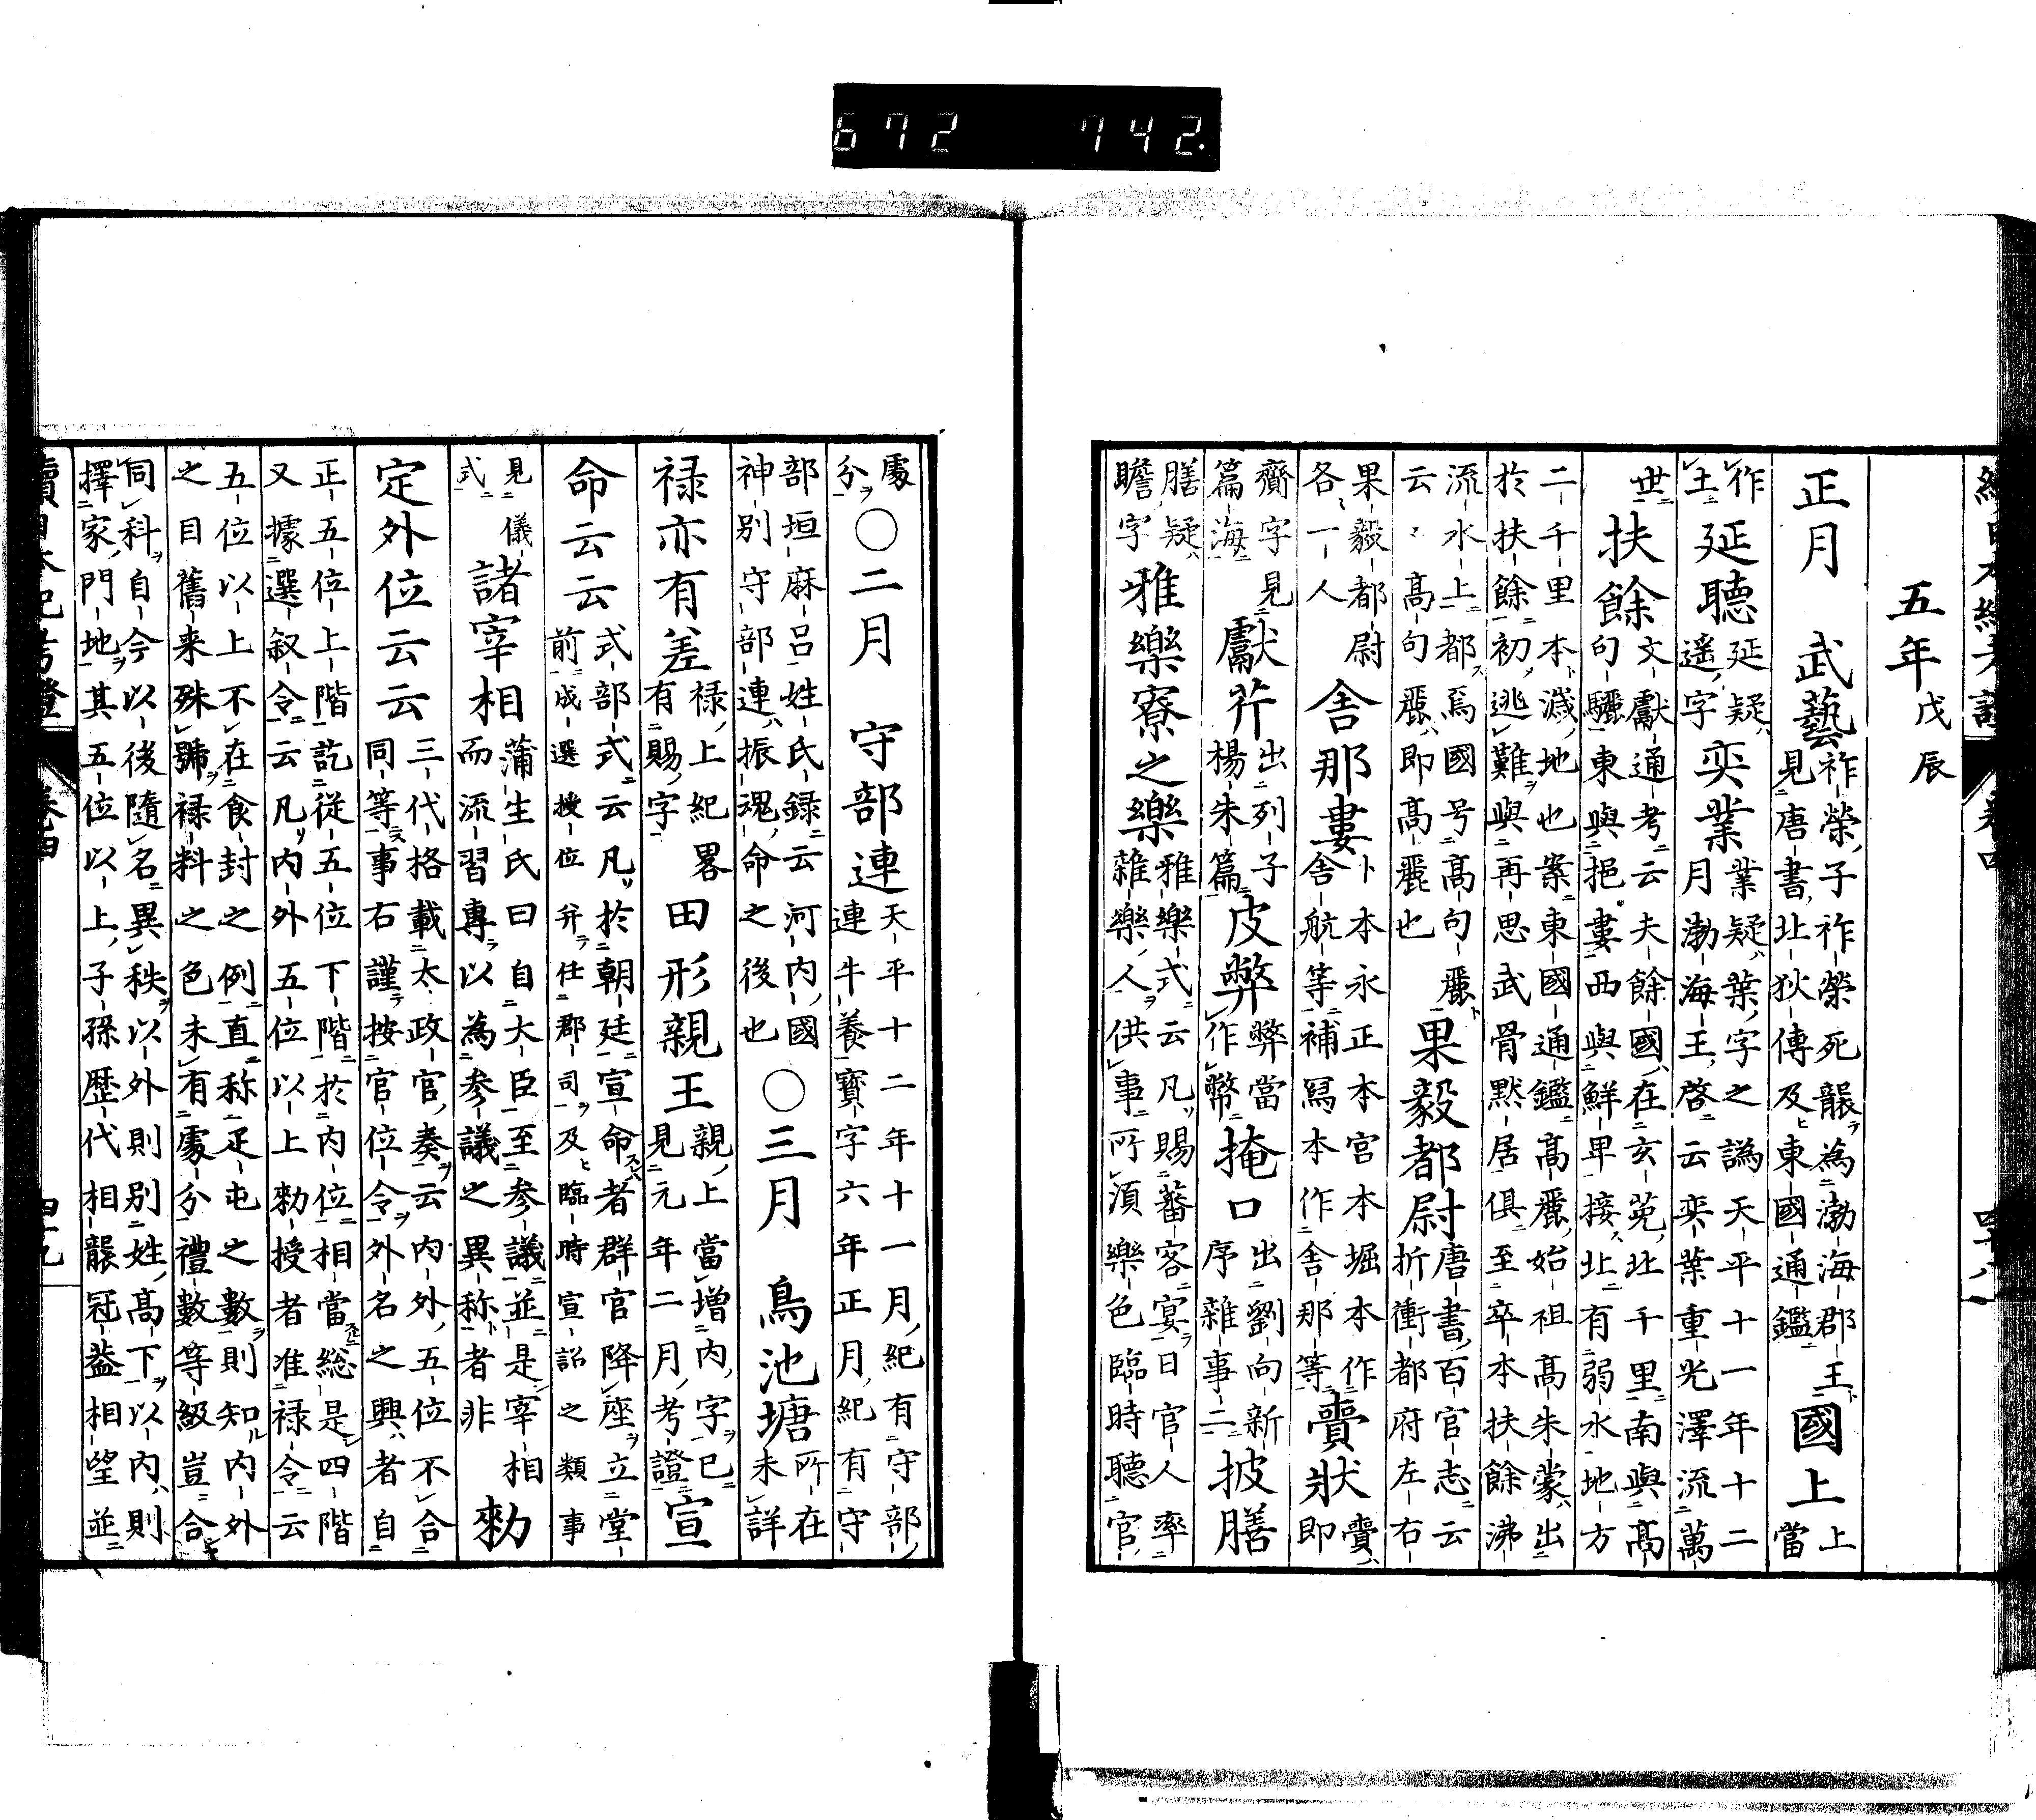 672 742.
五年戊辰
正月 武藝祚榮子祚榮死襲為渤海郡王
見唐書北狄傳及東國通鑑國上上
當
作
土延聽延疑
遥字奕業業疑葉字之譌天平十一年十二
月渤海王啓云奕葉重光澤流萬
世扶餘文獻通考云夫餘國在玄菟北千里南與高
句驪東與挹婁西與鮮卑接北有弱水地方
二千里本濊地也案東國通鑑高麗始祖高朱蒙出
於扶餘初逃難與再思武骨黙居俱至卒本扶餘沸
流水上都焉國号高句麗
云々高句麗即高麗也果毅都尉唐書百官志云
折衝都府左右
果毅都尉
各一人舎那婁卜本永正本宮本堀本作
舎航等補冩本作舎那等賷狀賷
即
齎字見
篇海獻芥出列子
楊朱篇皮弊弊當
作幣掩口出劉向新
序雜事二披膳
膳疑
瞻字雅樂寮之樂雅樂式云凡賜蕃客宴日官人率
雜樂人供事所須樂色臨時聽官
處
分○二月 守部連天平十二年十一月紀有守部
連牛養寶字六年正月紀有守
部垣麻呂姓氏録云河内國
神別守部連振魂命之後也○三月 鳥池塘所在
未詳
禄亦有差禄上紀畧
有賜字田形親王親上當増内字已
見元年二月考證宣
命云云式部式云凡於朝廷宣命者群官降座立堂
前成選授位并任郡司及臨時宣詔之類事
見儀
式諸宰相蒲生氏曰自大臣至参議並是宰相
而流習專以為参議之異称者非勅
定外位云云三代格載太政官奏云内外五位不合
同等事右謹按官位令外名之興者自
正五位上階訖從五位下階於内位相當総是四階
又據選叙令云凡内外五位以上勅授者准禄令云
五位以上不在食封之例直称疋屯之數則知内外
之目舊来殊號禄料之色未有處分禮數等級豈合
同科自今以後隨名異秩以外則別姓高下以内則
擇家門地其五位以上子孫歴代相襲冠葢相望並